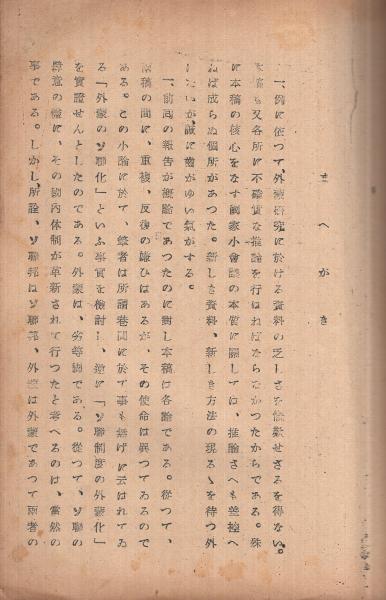 まへがき
一、例に依つて、外蒙研究に於ける資料の乏しさを慨歎せざるを得ない。
本稿も又各所に不確實な推論を行はねばならなかつたからである。殊
に本稿の核心をなす國家小會議の本質に關しては、推論さへも差控へ
ねば成らぬ個所があつた。新しき資料、新しき方法の現るゝを待つ外
はないが、誠に齒がゆい氣がする。
一、前回の報告が概論であつたのに對し本稿は各論である。從つて、
兩稿の間に、重複、反復の嫌ひはあるが、その使命は異つてゐるので
ある。この小論に於て、筆者は所謂巷間に於て事も無げに云はれてゐ
る「外蒙のソ聯化」といふ事實を檢討し、逆に「ソ聯制度の外蒙化」
を實證せんとしたのである。外蒙は、劣等國である。從つて、ソ聯の
意の儘に、その國内体制が革新されて行つたと考へるのは、當然の
事である。しかし、所詮、ソ聯邦はソ聯邦、外蒙は外蒙であつて兩者の